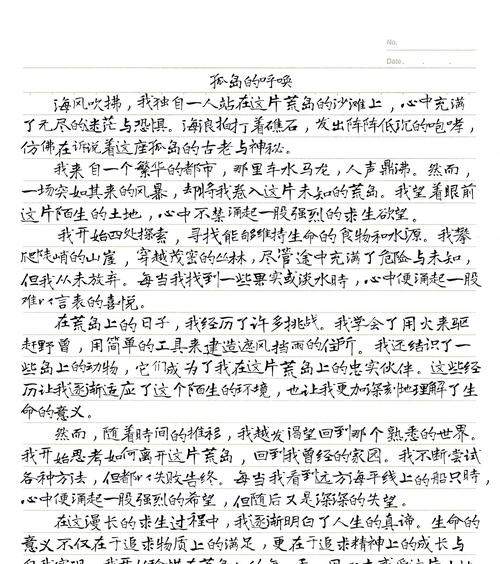 No.
Date. . .
孤岛的呼唤
海风吹拂，我独自一人站在这片荒岛的沙滩上，心中充满
了无尽的迷茫与恐惧。海浪拍打着礁石，发出阵阵低沉的咆哮，
仿佛在诉说着这座孤岛的古老与神秘。
我来自一个繁华的都市，那里车水马龙，人声鼎沸。然而，
一场突如其来的风暴，却将我卷入这片未知的荒岛。我望着眼前
这片陌生的土地，心中不禁涌起一股强烈的求生欲望。
我开始四处探索，寻找能够维持生命的食物和水源。我攀
爬陡峭的山崖，穿越茂密的丛林，尽管途中充满了危险与未知，
但我从未放弃。每当我找到一些果实或淡水时，心中便涌起一股
难以言表的喜悦。
在荒岛上的日子，我经历了许多挑战。我学会了用火来驱
赶野兽，用简单的工具来建造遮风挡雨的住所。我还结识了一
些岛上的动物，它们成为了我在这片荒岛上的忠实伙伴。这些经
历让我逐渐适应了这个陌生的环境，也让我更加深刻地理解了生
命的意义。
然而，随着时间的推移，我越发渴望回到那个熟悉的世界。
我开始思考如何离开这片荒岛，回到我曾经的家园。我不断尝试
各种方法，但都以失败告终。每当我看到远方海平线上的船只时，
心中便涌起一股强烈的希望，但随后又是深深的失望。
在这漫长的求生过程中，我逐渐明白了人生的真谛。生命的
意义不仅在于追求物质上的满足，更在于追求精神上的成长与